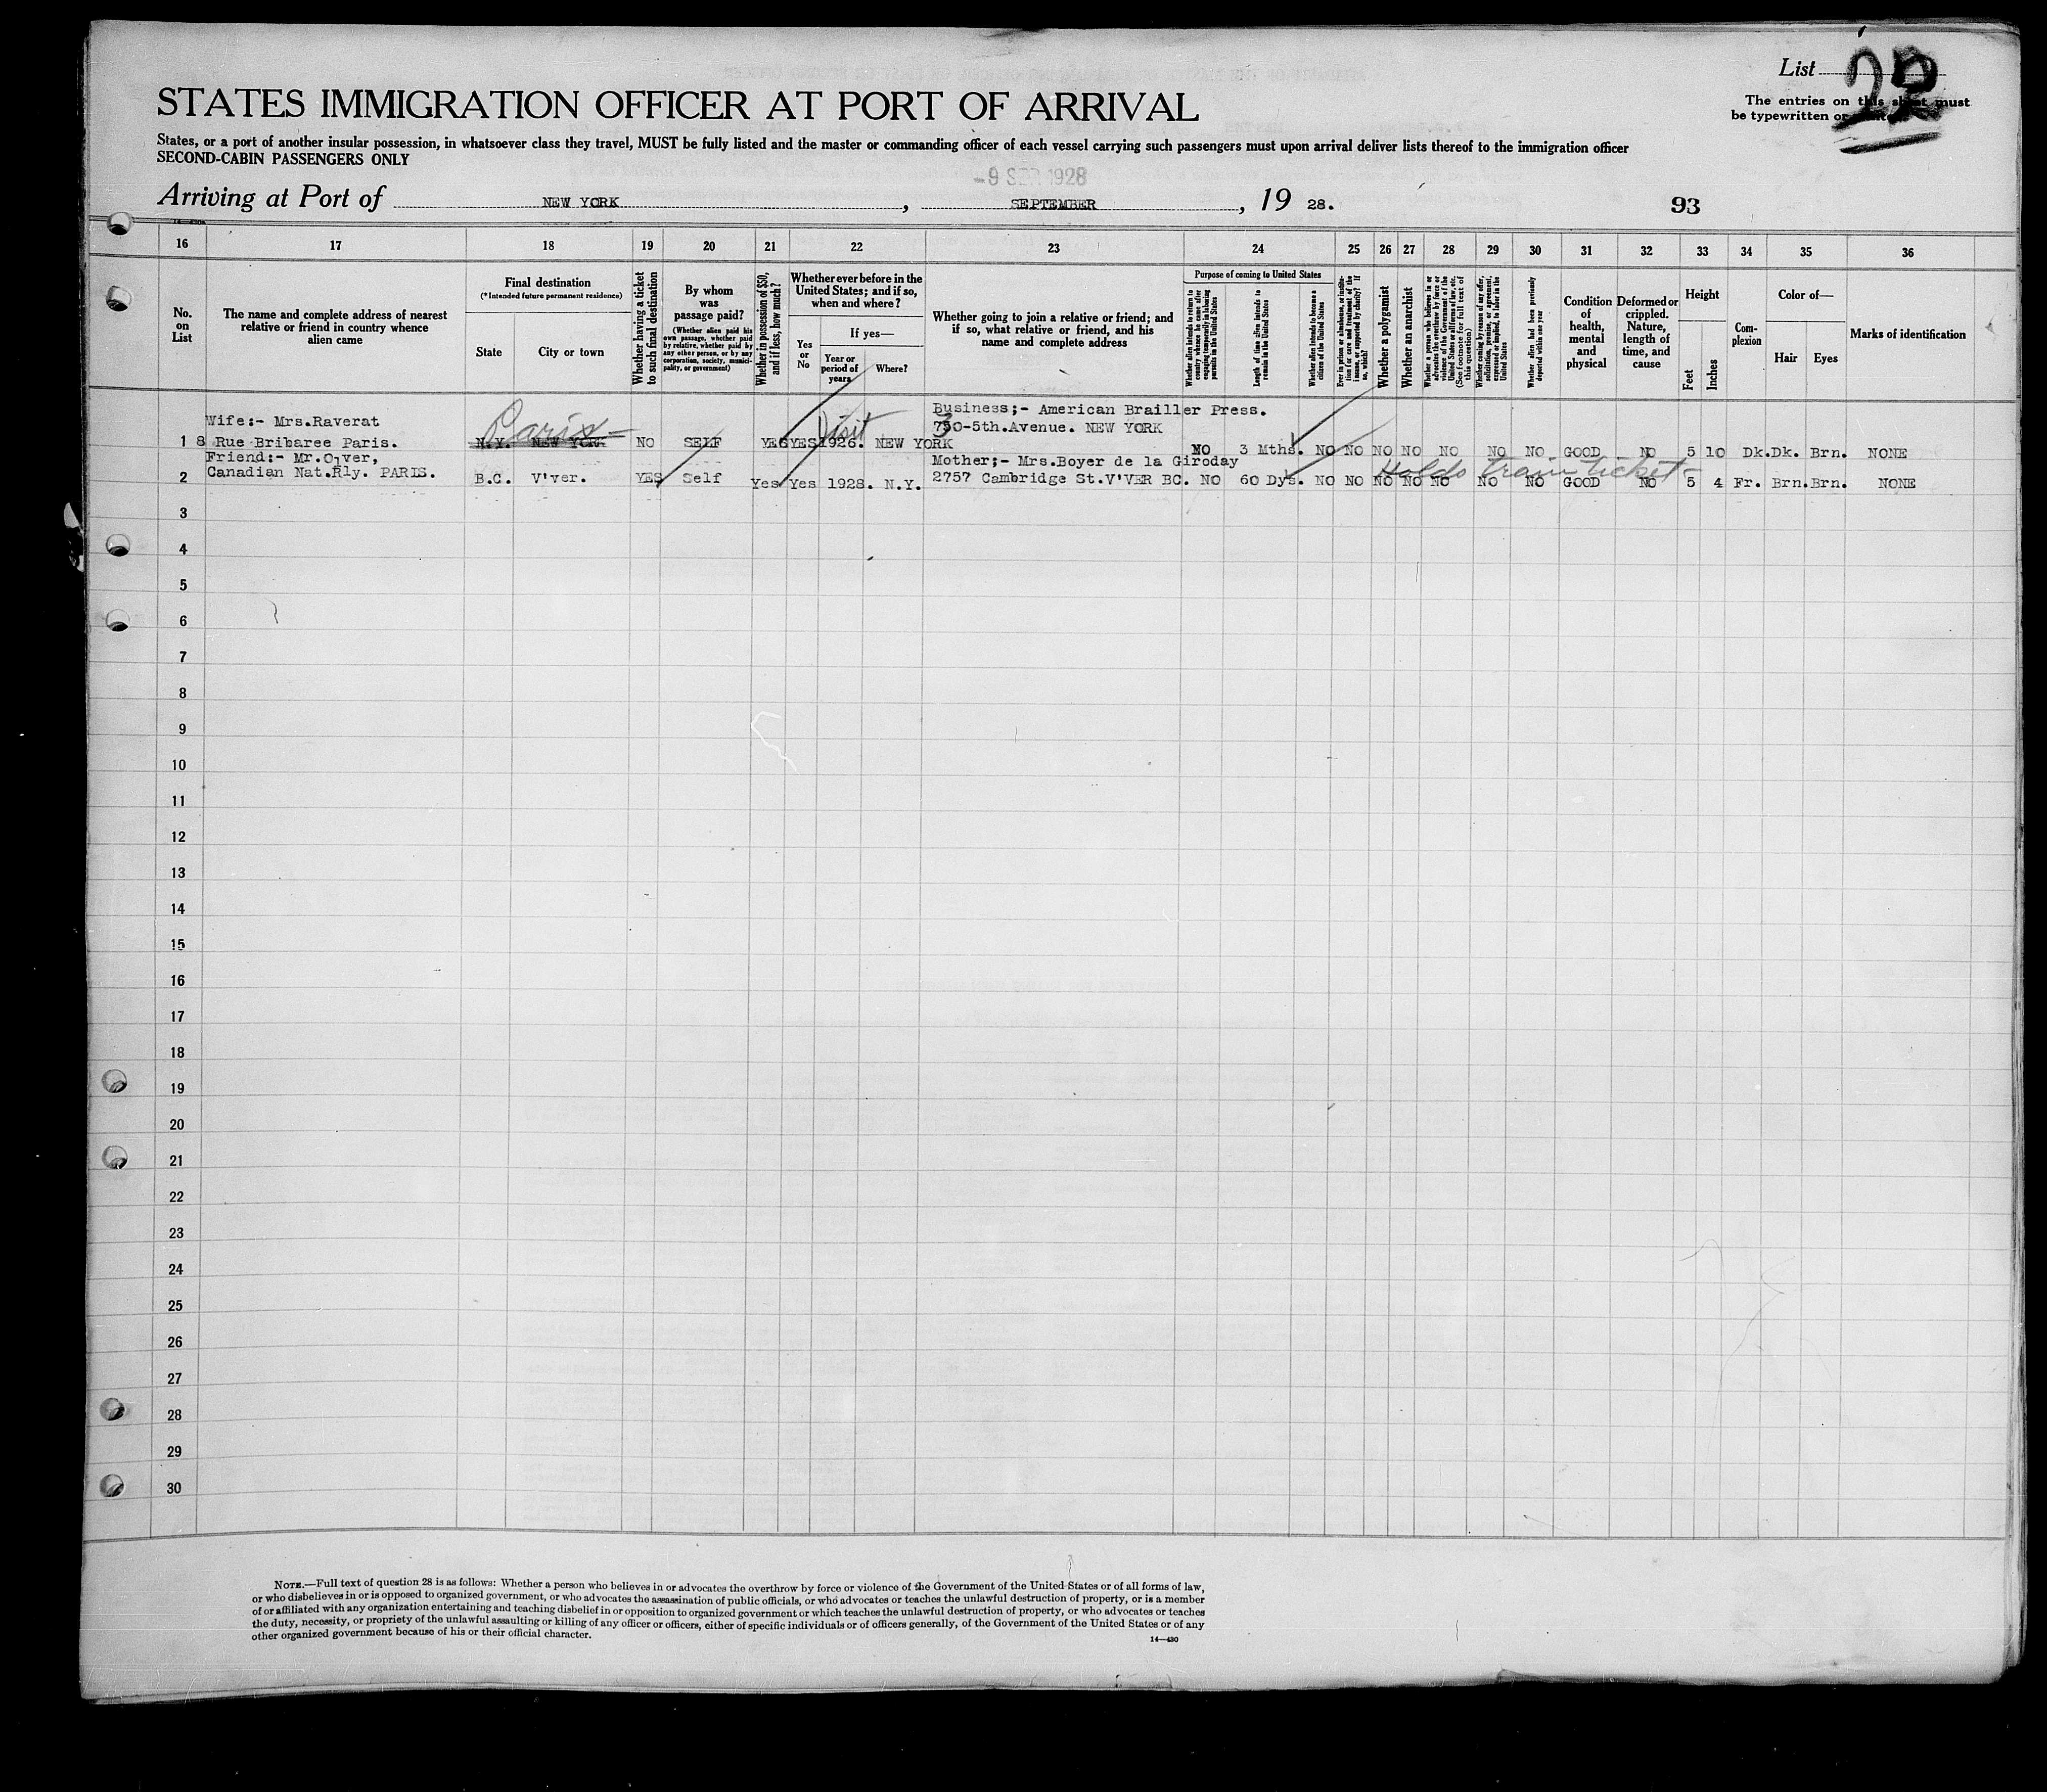 List 22
STATES IMMIGRATION OFFICER AT PORT OF ARRIVAL
The entries on this sheet must
be typewritten or
States, or a port of another insular possession, in whatsoever class they travel, MUST be fully listed and the master or commanding officer of each vessel carrying such passengers must upon arrival deliver lists thereof to the immigration officer
SECOND-CABIN PASSENGERS ONLY
-9 SEP 1928
Arriving at Port of NEW YORK, SEPTEMBER, 19 28. 93
16 17 18 19 20 21 22 23 24 25 26 27 28 29 30 31 32 33 34 35 36
No. on List
The name and complete address of nearest relative or friend in country whence alien came
Final destination
(*Intended future permanent residence)
State
City or town
Whether having a ticket to such final destination
By whom was passage paid?
(Whether alien paid his own passage, whether paid by relative, whether paid by any other person, or by any corporation, society, municipality, or government)
Whether in possession of $50, and if less, how much?
Whether ever before in the United States; and if so, when and where?
Yes or No
If yes—
Year or period of years
Where?
Whether going to join a relative or friend; and if so, what relative or friend, and his name and complete address
Purpose of coming to United States
Whether alien intends to return to country whence he came after engaging temporarily in laboring pursuits in the United States
Length of time alien intends to remain in the United States
Whether alien intends to become a citizen of the United States
Ever in prison or almshouse, or institution for care and treatment of the insane, or supported by charity? If so, which?
Whether a polygamist
Whether an anarchist
Whether a person who believes in or advocates the overthrow by force or violence of the Government of the United States or all forms of law, etc. (See footnote for full text of this question)
Whether coming by reason of any offer, solicitation, promise, or agreement, expressed or implied, to labor in the United States
Whether alien had been previously deported within one year
Condition of health, mental and physical
Deformed or crippled. Nature, length of time, and cause
Height
Feet
Inches
Complexion
Color of—
Hair
Eyes
Marks of identification
Wife:- Mrs.Raverat Paris Visit Business;- American Brailler Press.
3
750-5th.Avenue. NEW YORK
1 8 Rue Bribaree Paris. N.Y. NEW YORK NO SELF YES YES 1926. NEW YORK NO 3 Mths. NO NO NO NO NO NO NO GOOD NO 5 10 Dk. Dk. Brn. NONE
Friend:- Mr.Olver, Mother;- Mrs.Boyer de la Giroday Holds train ticket-
2 Canadian Nat.Rly. PARIS. B.C. V'ver. YES Self Yes Yes 1928. N.Y. 2757 Cambridge St.V'VER BC. NO 60 Dys. NO NO NO NO NO NO NO GOOD NO 5 4 Fr. Brn. Brn. NONE
3
4
5
6
7
8
9
10
11
12
13
14
15
16
17
18
19
20
21
22
23
24
25
26
27
28
29
30
NOTE.—Full text of question 28 is as follows: Whether a person who believes in or advocates the overthrow by force or violence of the Government of the United States or of all forms of law,
or who disbelieves in or is opposed to organized government, or who advocates the assassination of public officials, or who advocates or teaches the unlawful destruction of property, or is a member
of or affiliated with any organization entertaining and teaching disbelief in or opposition to organized government or which teaches the unlawful destruction of property, or who advocates or teaches
the duty, necessity, or propriety of the unlawful assaulting or killing of any officer or officers, either of specific individuals or of officers generally, of the Government of the United States or of any
other organized government because of his or their official character.
14—430